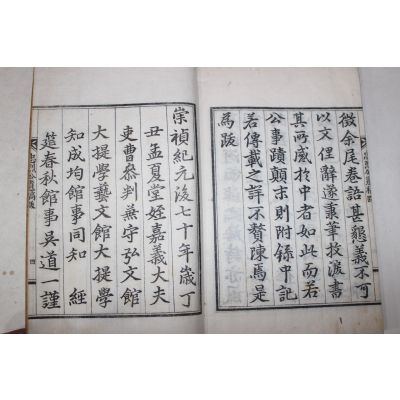 徵余尾卷語甚懇義不可
以文俚辭遂棄筆投涕書
其所感於中者如此而若
公事蹟顚末則附錄中記
若傳載之詳不贅陳焉是
為跋
崇禎紀元後七十年歲丁
丑孟夏堂姪嘉義大夫
吏曹參判兼守弘文館
大提學藝文館大提學
知成均館事同知 經
筵春秋館事吳道一謹
四